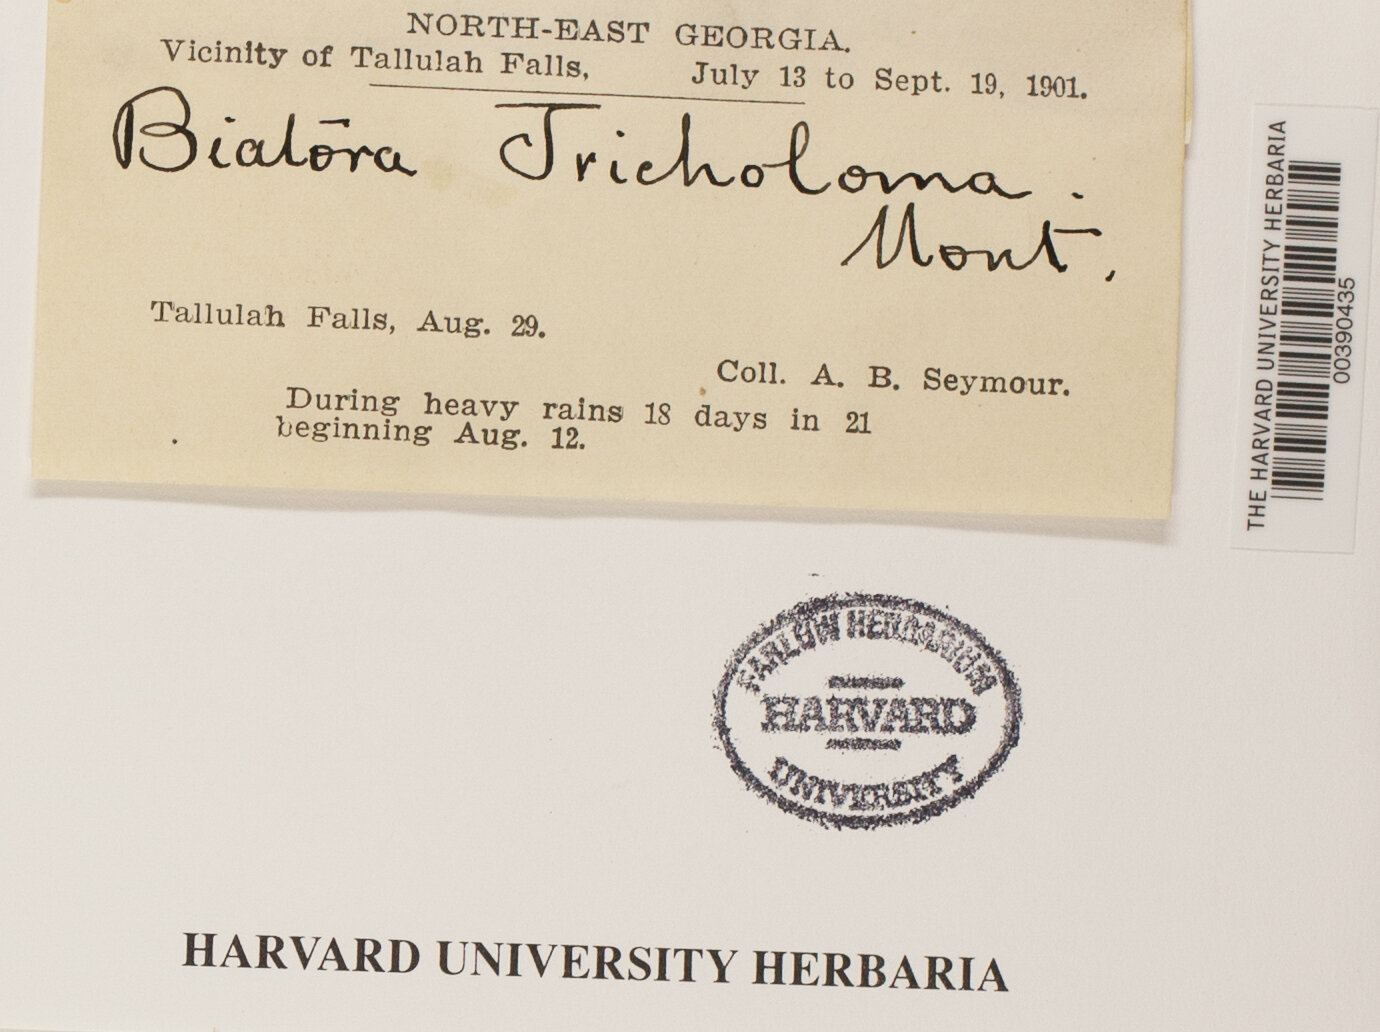 NORTH-EAST GEORGIA.
Vicinity of Tallulah Falls, July 13 to Sept. 19, 1901.
Biatōra Tricholoma.
Mont.
Tallulah Falls, Aug. 29.
Coll. A. B. Seymour.
During heavy rains 18 days in 21
beginning Aug. 12.
THE HARVARD UNIVERSITY HERBARIA
00390435
FARLOW HERBARIUM
HARVARD
UNIVERSITY
HARVARD UNIVERSITY HERBARIA